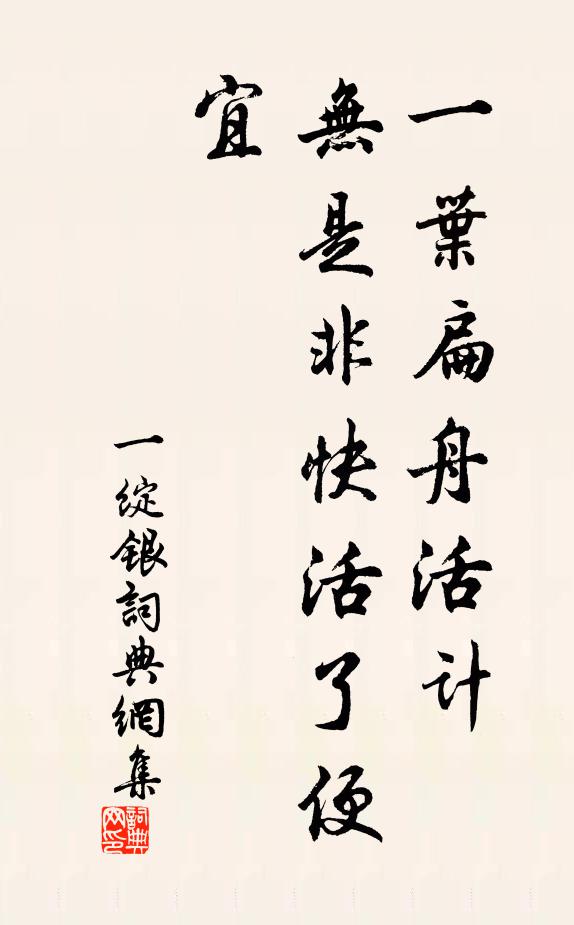 一葉扁舟活計
無是非快活了便
宜
一綻銀詞典網集
詞典
网印